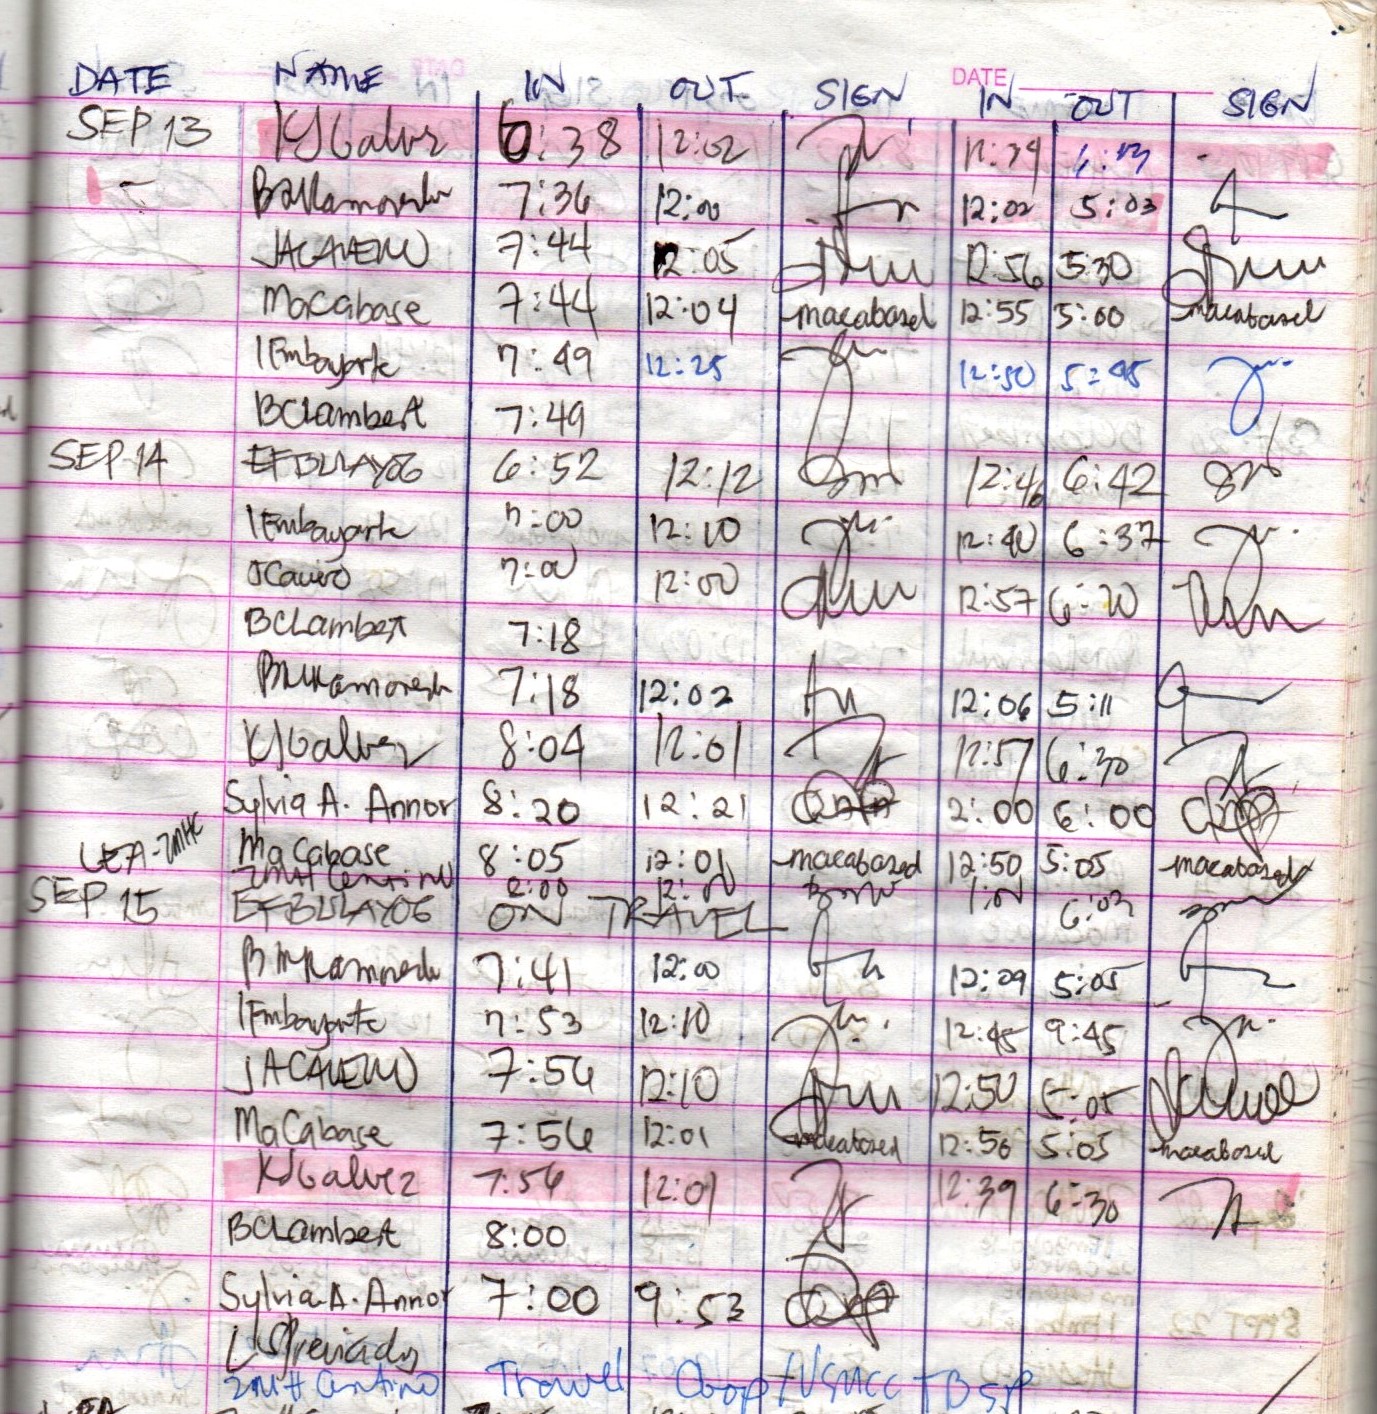 DATE NAME IN OUT SIGN DATE IN OUT SIGN
SEP 13 KJGalvez 6:38 12:02 12:39 6:13
7:36 12:00 12:02 5:03
JACAVERO 7:44 12:05 12:56 5:30
MaCabase 7:44 12:04 macabased 12:55 5:00 macabased
IEmbayarte 7:49 12:25 12:50 5:45
BCLambert 7:49
SEP 14 EFBULAYOG 6:52 12:12 12:46 6:42
IEmbayarte 7:00 12:10 12:40 6:37
JCavero 7:00 12:00 12:57 6:20
BCLambert 7:18
7:18 12:02 12:06 5:11
KJGalvez 8:04 12:01 12:57 6:30
Sylvia A. Annor 8:20 12:21 2:00 6:00
MaCabase 8:05 12:01 macabased 12:50 5:05 macabased
ZMH
SEP 15 EFBULAYOG ON TRAVEL 6:03
7:41 12:00 12:09 5:05
IEmbayarte 7:53 12:10 12:45 9:45
JACAVERO 7:56 12:10 12:50 5:05
MaCabase 7:56 12:01 macabased 12:56 5:05 macabased
KJGalvez 7:56 12:01 12:39 6:30
BCLambert 8:00
Sylvia A. Annor 7:00 9:53
Travel Coop